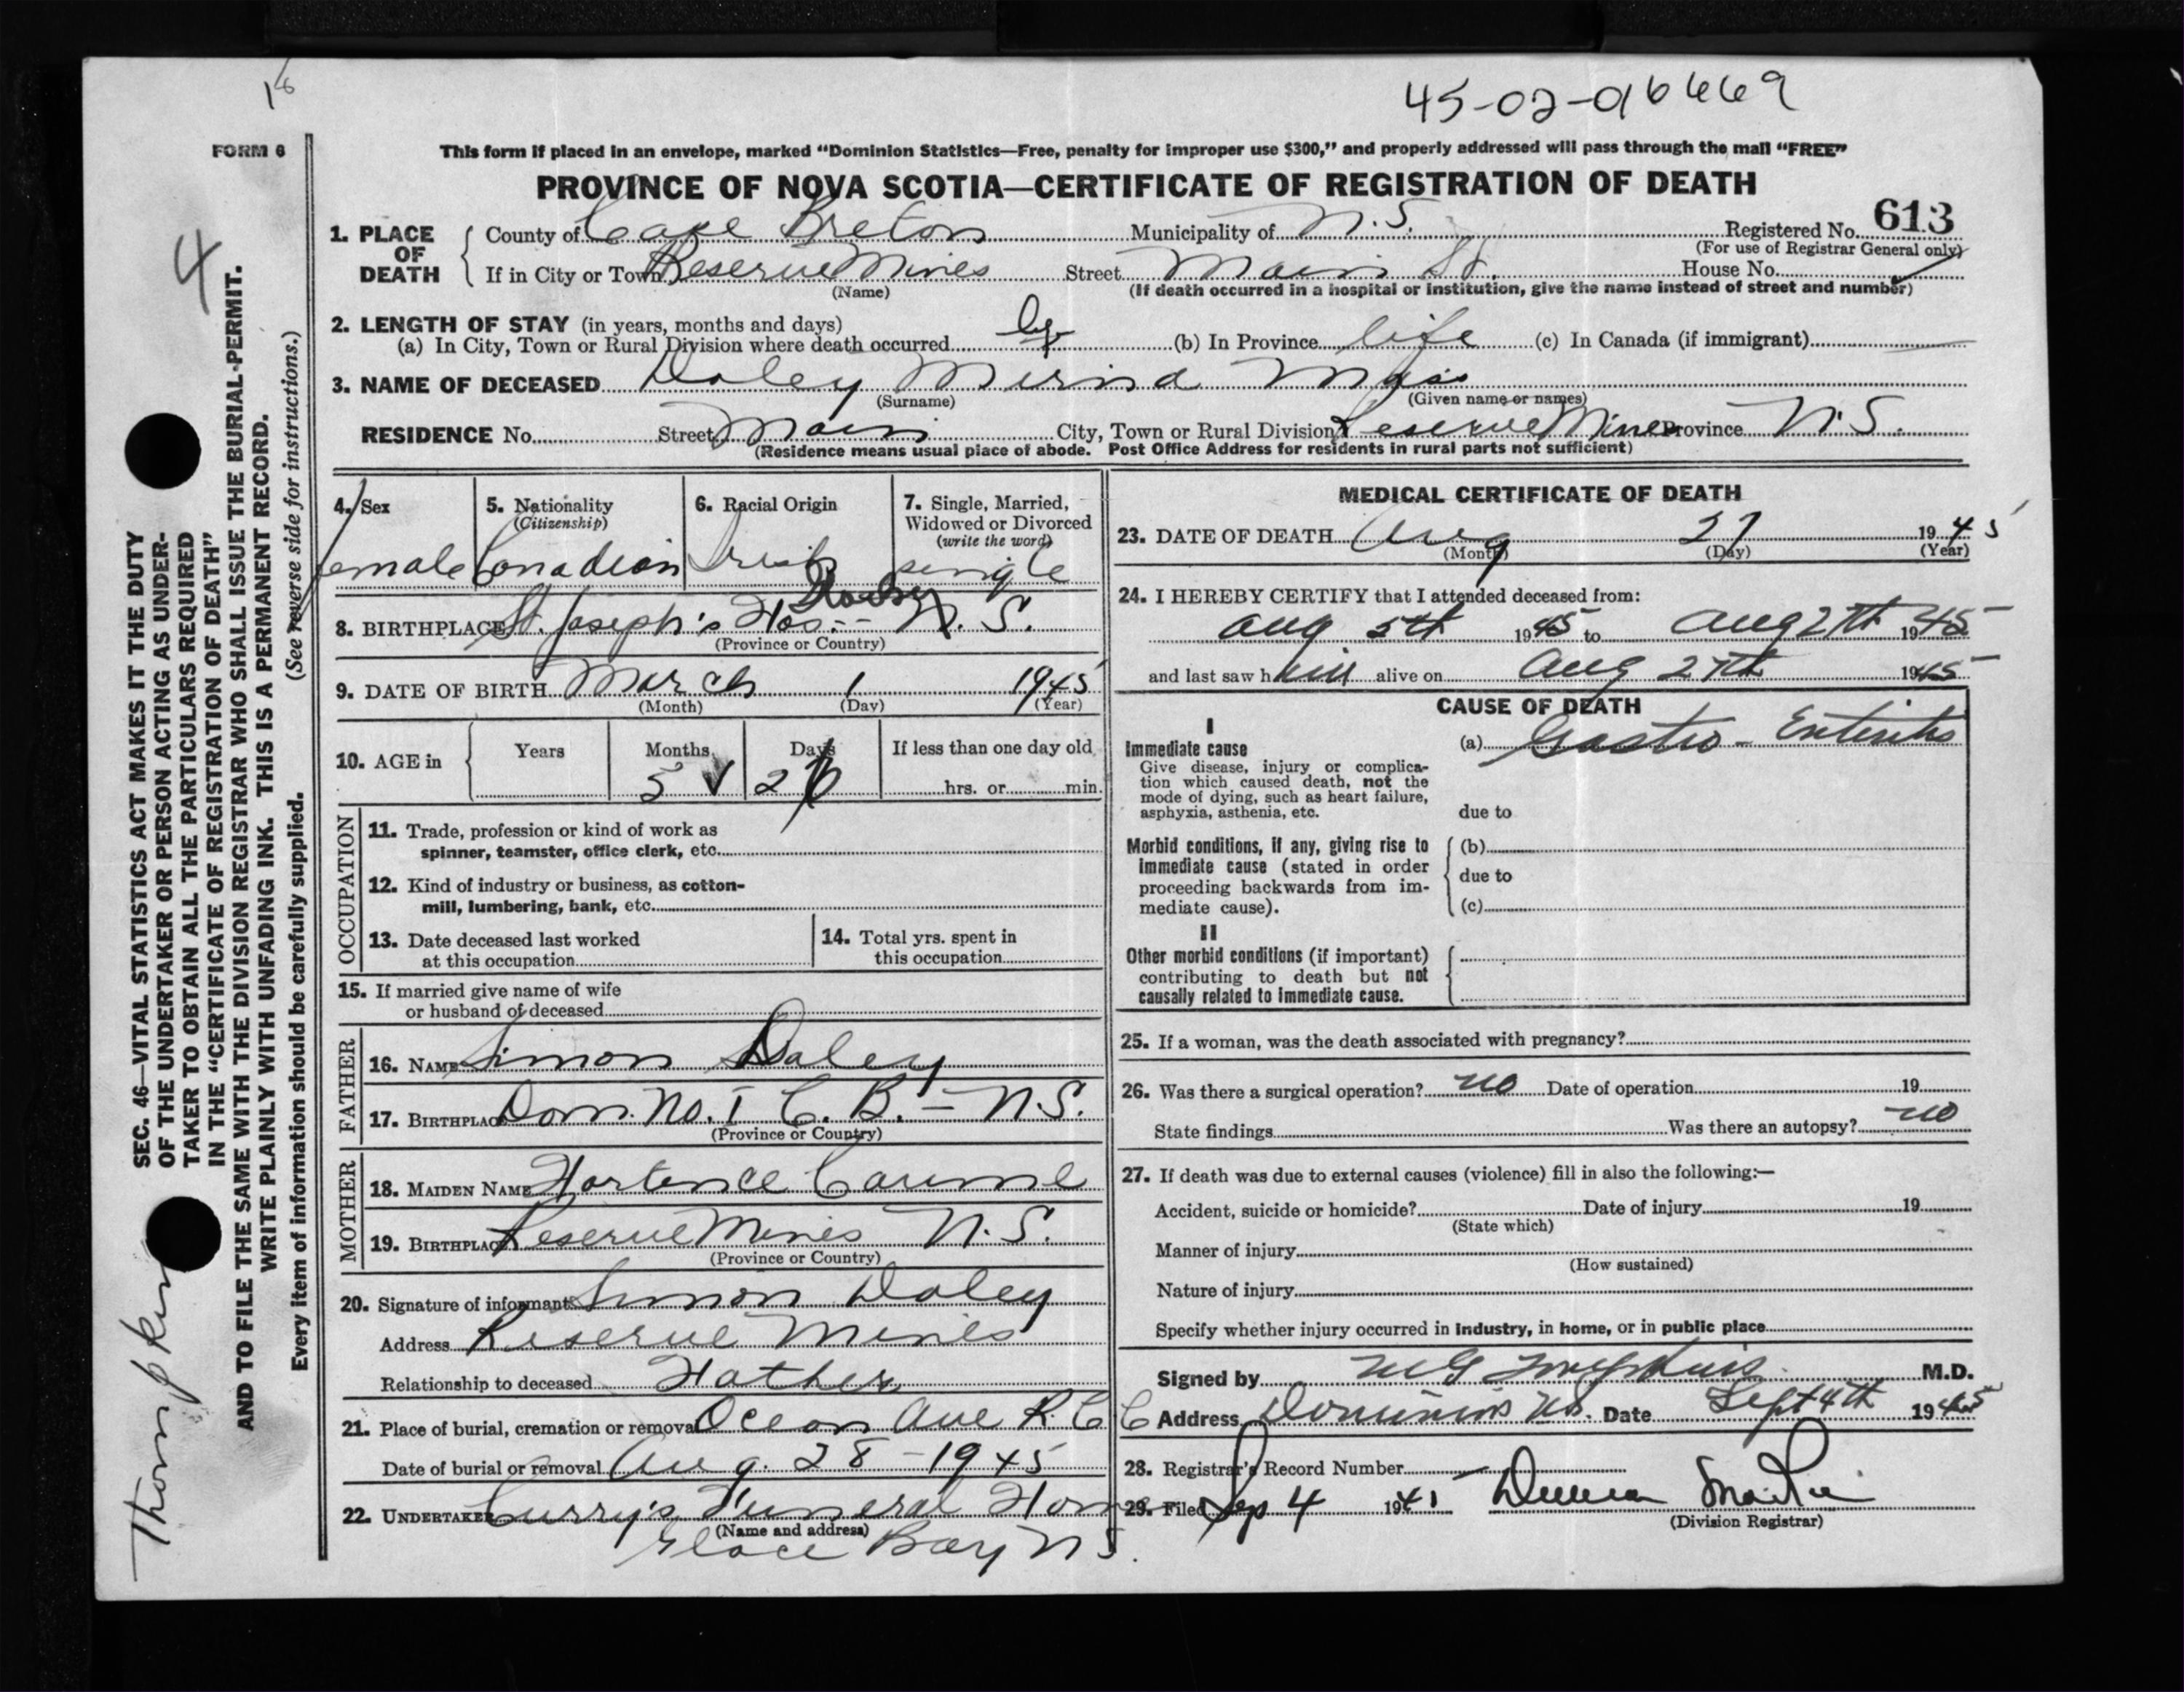 16
45-02-016669
FORM 6
This form if placed in an envelope, marked “Dominion Statistics—Free, penalty for improper use $300,” and properly addressed will pass through the mail “FREE”
PROVINCE OF NOVA SCOTIA—CERTIFICATE OF REGISTRATION OF DEATH
1. PLACE OF DEATH
County of Cape Breton Municipality of N. S. Registered No. 613
(For use of Registrar General only)
If in City or Town Reserve Mines Street Main St. House No.
(Name) (If death occurred in a hospital or institution, give the name instead of street and number)
2. LENGTH OF STAY (in years, months and days)
(a) In City, Town or Rural Division where death occurred (b) In Province life (c) In Canada (if immigrant)
3. NAME OF DECEASED Daley
(Surname) (Given name or names)
RESIDENCE No. Street Main City, Town or Rural Division Reserve Mines Province N. S.
(Residence means usual place of abode. Post Office Address for residents in rural parts not sufficient)
4. Sex
female
5. Nationality
(Citizenship)
Canadian
6. Racial Origin
Irish
7. Single, Married,
Widowed or Divorced
(write the word)
single
8. BIRTHPLACE St. Joseph's Hos. -- N. S.
(Province or Country)
9. DATE OF BIRTH March 1 1945
(Month) (Day) (Year)
10. AGE in Years Months Days If less than one day old
5 26 hrs. or min.
OCCUPATION
11. Trade, profession or kind of work as
spinner, teamster, office clerk, etc.
12. Kind of industry or business, as cotton-
mill, lumbering, bank, etc.
13. Date deceased last worked
at this occupation
14. Total yrs. spent in
this occupation
15. If married give name of wife
or husband of deceased
FATHER
16. NAME Simon Daley
17. BIRTHPLACE Dom. No. 1 C. B. - N.S.
(Province or Country)
MOTHER
18. MAIDEN NAME Hortence
19. BIRTHPLACE Reserve Mines N. S.
(Province or Country)
20. Signature of informant Simon Daley
Address Reserve Mines
Relationship to deceased Father
21. Place of burial, cremation or removal Ocean Ave R. C C
Date of burial or removal Aug. 28 - 1945
22. UNDERTAKER Curry's Funeral Home
(Name and address)
Glace Bay N S.
MEDICAL CERTIFICATE OF DEATH
23. DATE OF DEATH Aug 27 1945
(Month) (Day) (Year)
24. I HEREBY CERTIFY that I attended deceased from:
Aug 5th 1945 to Aug 27th 1945
and last saw h alive on Aug 27th 1945
CAUSE OF DEATH
I
Immediate cause
Give disease, injury or complica-
tion which caused death, not the
mode of dying, such as heart failure,
asphyxia, asthenia, etc.
(a) Gastro-Enteritis
due to
Morbid conditions, if any, giving rise to
immediate cause (stated in order
proceeding backwards from im-
mediate cause).
(b)
due to
(c)
II
Other morbid conditions (if important)
contributing to death but not
causally related to immediate cause.
25. If a woman, was the death associated with pregnancy?
26. Was there a surgical operation? no Date of operation 19
State findings Was there an autopsy? no
27. If death was due to external causes (violence) fill in also the following:—
Accident, suicide or homicide? Date of injury 19
(State which)
Manner of injury
(How sustained)
Nature of injury
Specify whether injury occurred in industry, in home, or in public place
Signed by M G Tompkins M.D.
Address Dominion N.S. Date Sept 4th 1945
28. Registrar's Record Number
29. Filed Sep 4 19
(Division Registrar)
4
SEC. 46—VITAL STATISTICS ACT MAKES IT THE DUTY
OF THE UNDERTAKER OR PERSON ACTING AS UNDER-
TAKER TO OBTAIN ALL THE PARTICULARS REQUIRED
IN THE “CERTIFICATE OF REGISTRATION OF DEATH”
AND TO FILE THE SAME WITH THE DIVISION REGISTRAR WHO SHALL ISSUE THE BURIAL-PERMIT.
WRITE PLAINLY WITH UNFADING INK. THIS IS A PERMANENT RECORD.
Every item of information should be carefully supplied. (See reverse side for instructions.)